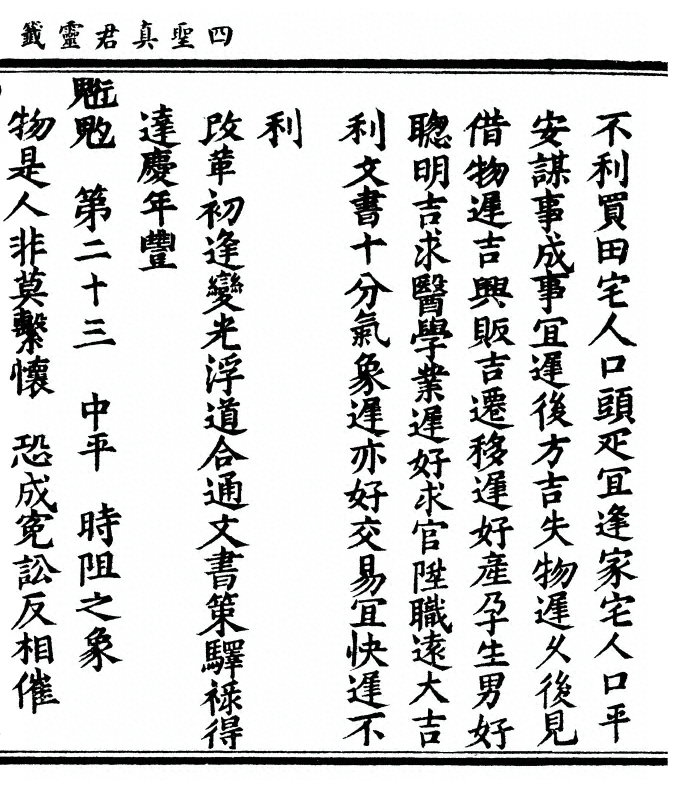 四聖真君靈籤
不利買田宅人口頭疋宜逢家宅人口平
安謀事成事宜遲後方吉失物遲久後見
借物遲吉興販吉遷移遲好產孕生男好
聰明吉求醫學業遲好求官陞職遠大吉
利文書十分氣象遲亦好交易宜快遲不
利
改革初逢變光浮道合通文書策驛祿得
達慶年豐
第二十三 中平 時阻之象
物是人非莫繫懷 恐成冤訟反相催